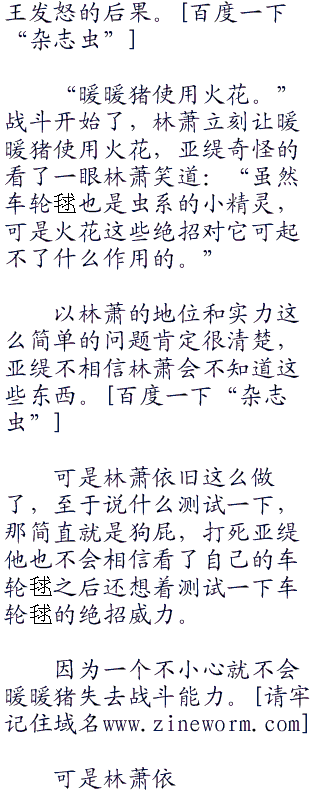 王发怒的后果。[百度一下
“杂志虫”]
“暖暖猪使用火花。”
战斗开始了，林萧立刻让暖
暖猪使用火花，亚缇奇怪的
看了一眼林萧笑道：“虽然
车轮毬也是虫系的小精灵，
可是火花这些绝招对它可起
不了什么作用的。”
以林萧的地位和实力这
么简单的问题肯定很清楚，
亚缇不相信林萧会不知道这
些东西。[百度一下“杂志
虫”]
可是林萧依旧这么做
了，至于说什么测试一下，
那简直就是狗屁，打死亚缇
他也不会相信看了自己的车
轮毬之后还想着测试一下车
轮毬的绝招威力。
因为一个不小心就不会
暖暖猪失去战斗能力。[请牢
记住域名www.zineworm.com]
可是林萧依